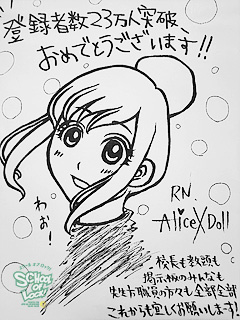 登録者数23万人突破
おめでとうございます!!
わぉ!
RN.
AliceXDoll
校長も教頭も
掲示板のみんなも
先生方職員の方々も全部全部
これからも宜しくお願いします!
SCHOOL
OF
LOCK!